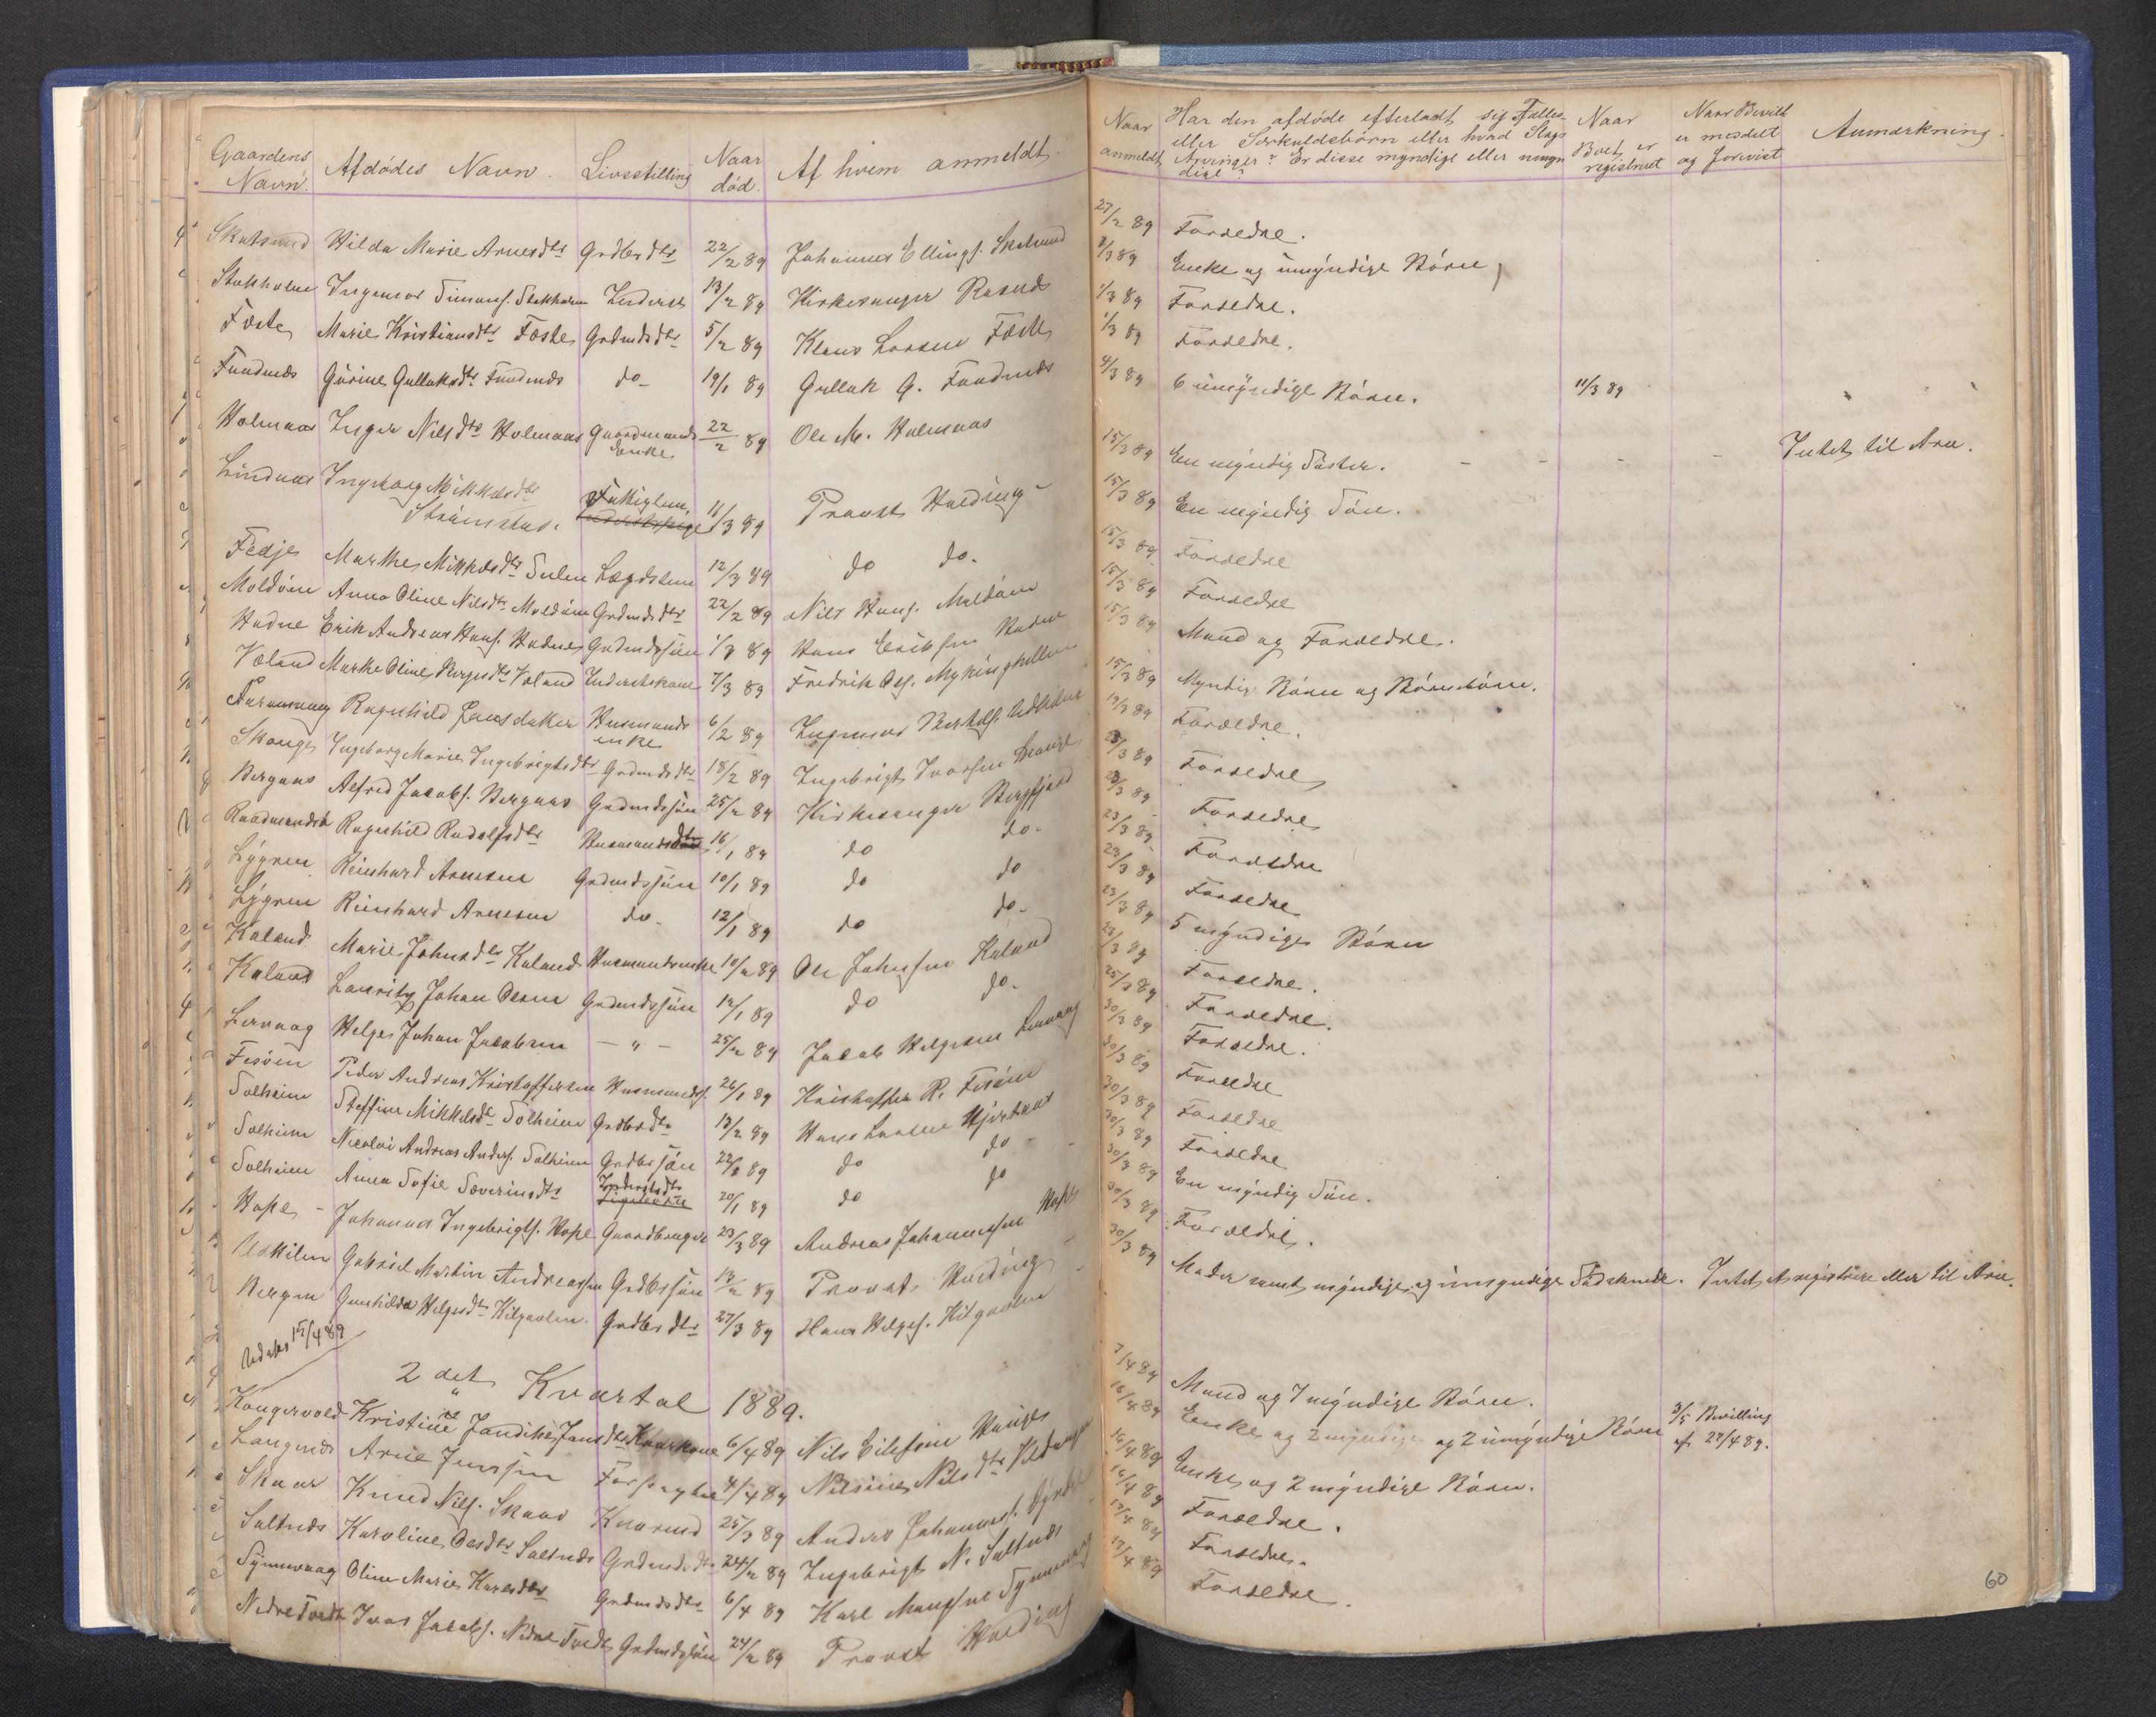 Gaardens Navn. Afdødes Navn. Livsstilling Naar død. Af hvem anmeldt.
Naar anmeldt Har den afdøde efterladt sig Fælles- eller Særkuldsbørn eller hvad Slags Arvinger? Er disse myndige eller umyndige? Naar Boet er registreret Naar Bevill er meddelt og forevist Anmærkning.
Skutsund Hilda Marie Arnesdtr Grdbrdtr 22/2 89 Johannes Ellings. 27/2 89 Forældre.
Stokholm Ingemar Simons. Stokholm Inderst 13/2 89 Kirkesanger 2/3 89 Enke og umyndige Børn,
Fæste Marie Kristiansdtr Fæste Grdmdsdtr 5/2 89 Klaus Larsen Fæste 1/3 89 Forældre.
Fundnæs Gurine Gullaksdtr Fundnæs do- 19/1 89 Gullak G. Fundnæs 1/3 89 Forældre.
Holmaas Inger Nilsdtr Holmaas Gaardmands Enke 22/2 89 Ole M. Holmaas 4/3 89 6 umyndige Børn. 11/3 89
Lindaas Ingeborg Mikkelsdtr Fattiglem 11/3 89 Provst Harding 15/3 89 En myndig Søster. - - - - Intet til Arv.
Fedje Marthe Mikkelsdtr Sulen Lægdslem 12/3 89 do do. 15/3 89 En myndig Søn.
Moldøen Anna Oline Nilsdtr Moldøen Grdmdsdtr 22/2 89 Nils Hans. Moldøen 15/3 89 Forældre
Hadne Erik Andreas Hans. Hadne Grdmdssøn 1/3 89 Hans Eriksen Hadne 15/3 89 Forældre
Væland Marthe Oline Børgesdtr Væland Inderstkone 7/3 89 Fredrik Ols. Mykingheller 15/3 89 Mand og Forældre.
Ragnhild Husmands enke 6/2 89 Ingemar 15/3 89 Myndige Børn og Børnebørn.
Skauge Ingeborg Marie Ingebrigtsdtr Grdmdsdtr 18/2 89 Ingebrigt Ivarsen Skauge 19/3 89 Forældre.
Bergaas Alfred Jacobs. Bergaas Grdmdssøn 25/2 89 Kirkesanger Bergfjord 23/3 89 Forældre
Ragnhild Rudolfsdtr Husmandsdtr 16/1 89 do do- 23/3 89 Forældre
Lygren Reinhard Arnesen Grdmdssøn 10/1 89 do do 23/3 89 Forældre
Lygren Reinhard Arnesen do- 12/1 89 do do- 23/3 89 Forældre
Kaland Marie Johnsdtr Kaland Husmandsenke 10/2 89 Ole Johnsen Kaland 23/3 89 5 myndige Børn
Kaland Lauritz Johan Olsen Grdmdssøn 12/1 89 do do- 23/3 89 Forældre.
Lervaag Helge Johan Jacobsen - " - 25/2 89 Jacob Helgesen Lervaag 25/3 89 Forældre.
Fesøen Peder Andreas Kristoffersen Husmands. 26/1 89 Kristoffer R. Fesøen 30/3 89 Forældre.
Solheim Steffine Mikkelsdtr Solheim Grdbrdtr 13/2 89 Hans Larsen Hjertaas 30/3 89 Forældre
Solheim Nicolai Andreas Anders. Solheim Grdbrsøn 22/2 89 do do - 30/3 89 Forældre
Solheim Anna Sofie Severinsdtr Inderstsdtr 20/1 89 do do 30/3 89 Forældre
Hope - Johannes Ingebrigts. Hope Gaardbruger 23/3 89 Andreas Johannessen Hope 30/3 89 En myndig Søn.
Udkilen Gabriel Martin Andreassen Grdbrsøn 13/2 89 Provst Harding 30/3 89 Forældre.
Bergen Gunhilda Helgesdtr Kilgavlen. Grdbrdtr 27/3 89 Hans Helges. Kilgavlen 30/3 89 Moder samt myndige og umyndige Sødskende. Intet at registrere eller til Arv.
15/4 89
2det Kvartal 1889.
Kongsvold Kristine Jandike Jansdtr Kaarkone 6/4 89 Nils Eilefsen Hauge 7/4 89 Mand og 7 myndige Børn.
Langenæs Arne Jenssen 4/4 89 Nilsine Nilsdtr 16/4 89 Enke og 2 myndige og 2 umyndige Børn 3/5 Bevilling af 27/4 89.
Skaar Knud Nils. Skaar Kaarmd 25/3 89 Anders Johanness. 16/4 89 Enke og 2 myndige Børn.
Saltnæs Karoline Olesdtr Saltnæs Grdmdsdtr 24/2 89 Ingebrigt N. Saltnæs 16/4 89 Forældre.
Synnevaag Oline Marie Karlsdtr Grdmdsdtr 6/4 89 Karl Monssen Synnevaag 17/4 89 Forældre.
Nedre Tvedt Ivar Jacobs. Nedre Tvedt Grdmdssøn 24/2 89 Provst Harding 17/4 89 Forældre.
60